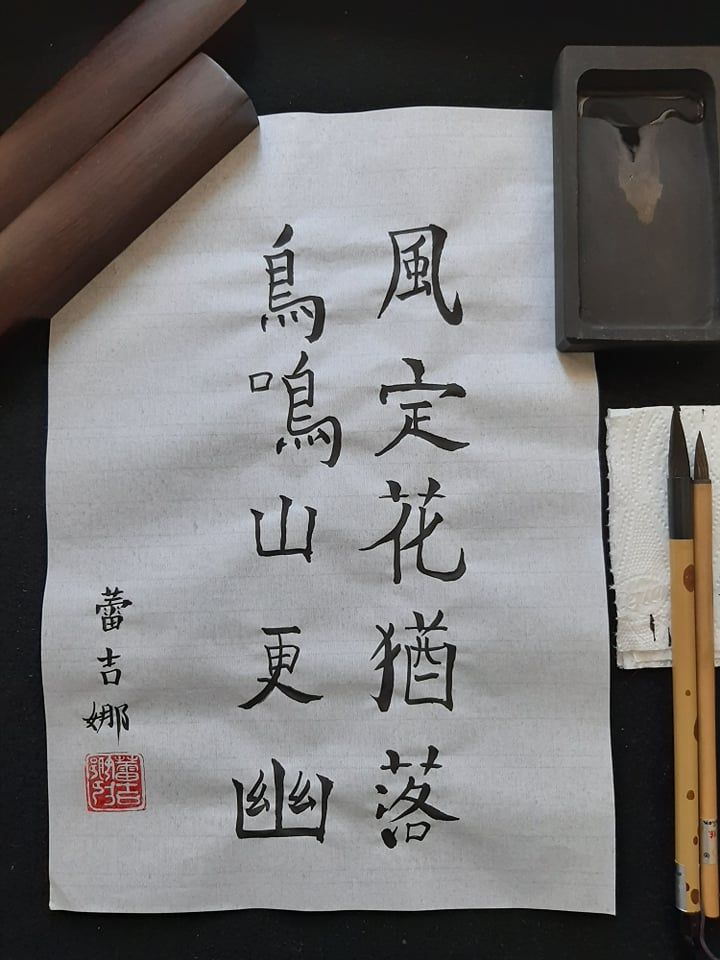 風定花猶落
鳥鳴山更幽
蕾吉娜
蕾吉娜